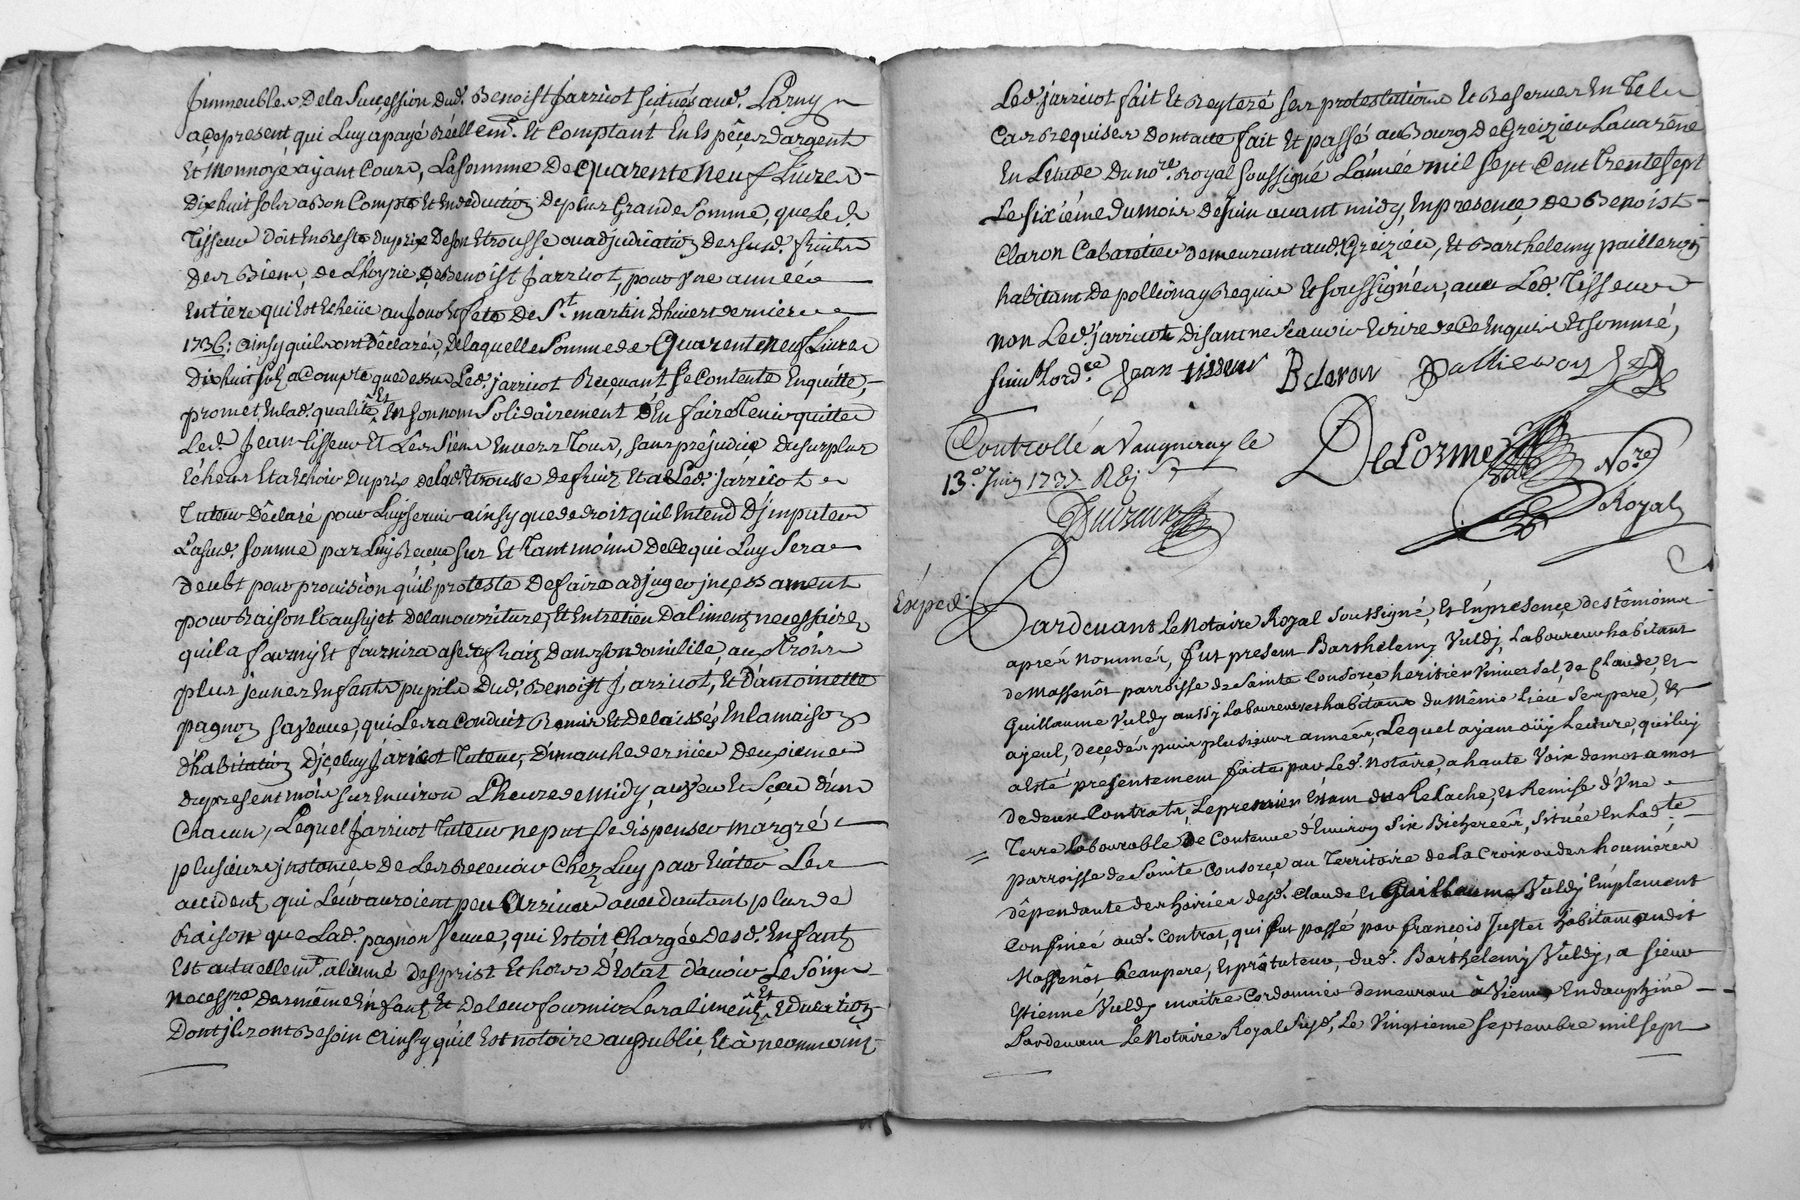 Jmmeubles de la Sucçession dud. Benoist Jarricot scitués aud. Larny
acepresent, qui Luy a payé Réellemt. Et Comptant En Espêçes d'argent
Et Monnoye ayant Cours, La somme De quarente neuf Livres
Dix huit sols a Bon Compte Et En deduction de plus Grande Somme, que Le d.
Tisseur Doit En Reste du prix De son Etrousse ou adjudication des susd. fruits
des Biens, de L'hoyrie de Benoist Jarricot, pour Vne année
Entiere qui Est Echeüe au Jour Et fete De St. martin D'hivert derniere
1736: ainsy qu'ils ont Déclaré, De laquelle Somme de Quarente neuf Livres
Dix huit sols a Compte que dessus Led. jarricot Reçevant, se Contente En quitte,
promet En lad. qualité Et En son nom Solidairement d'En faire Tenir quitte
Led. Jean tisseur Et Les Siens Envers Tous, sans préjudice du surplus
Echeus Et a Echoir du prix de lad. Etrousse de fruiz Et a Led. Jarricot
Tuteur Déclaré pour Luy servir ainsy que de droit qu'il Entend D'jmputer
La sud. somme par Luy Receue sur Et Tant moins de Ce qui Luy Sera
deubt pour provision qu'il proteste De faire adjuger jncessament
pour Raison Et au sujet de la nourriture, Et Entretien D'aliments necessaires
qu'il a fourny Et fournira a ses fraiz dans son domicile, aux Trois
plus jeunes Enfants pupils Dud. Benoist Jarricot, Et D'antoinette
pagnon sa Veuve, qui Les a Conduit Remis Et Delaissés En la maison
d'habitation D'jceluy Jarricot Tuteur, Dimanche dernier Deuxieme
du present mois sur Environ L'heure de Midy, au Veu Et Sçeu d'un
Chacun, Lequel Jarricot Tuteur ne put se dispenser margré
plusieurs jnstances de Les Recevoir Chez Luy pour Eviter Les
accidents qui Leur auroient peu arriver avec d'autant plus de
Raison que Lad. pagnon Veuve, qui Estoit Chargée Desd. Enfants
Est actuellemt. aliené d'esprist Et hors D'Estat d'avoir Le Soins
necessre. des même Enfants Et De leur fournir Les aliments Et Education
Dont jls ont Besoin Ainsy qu'il Est notoire au public, Et à neanmoins
Led. jarricot fait Et Reyteré ses protestations Et Reserves En Tels
Cas Requises Dont acte fait Et passé au Bourg De Greizieu Lavarêne
En L'etude Du nore. Royal soussigné L'année mil sept Cent Trente sept
Le sixiéme du mois de juin avant midy, En presence de Benoist
Claron Cabaretier demeurant aud. Greizieu, Et Barthelemy pailleron
habitant De pollionay Requis Et soussignés, avec Led. Tisseur
non Led. jarricot disant ne Scavoir Ecrire de Ce Enquis Et Sommé,
suivt. Lordce. Jean tisseur B claron Pallieron
Controllé a Vaugneray le
13e. Juin 1737. R 6s
DeLorme Nore.
Royal
Exped.
Pardevant Le Notaire Royal Soussigné, Et En presençe des têmoins
aprés nommés, fut present Barthelemy Vuldy, Laboureur habitant
de Massenôt parroisse de Sainte Consorçe heritier Vniversel, de Claude, et
Guillaume Vuldy aussy Laboureurs et habitans du même Lieu Ses pere, et
ayeul, deçedés puis plusieurs années, Lequel ayant oüy Lecture, qui luy
a Esté presentement faite par Led. Notaire, a haute Voix de mot a mot
de deux Contrats, Le premier Etant du Relache, et Remise d'Vne
Terre Labourable De Contenue d'Environ Six Bicherées, Située En lad.te
parroisse de Sainte Consorçe au Territoire de La Croix ou des houmieres
dêpendante des hoiries desd. Claude Et Guillaume Vuldy Emplement
Confinée aud. Contrat, qui fut passé par François Juster habitant audit
Massenôt Beaupere, et prôtuteur, dud. Barthélemy Vuldy, a Sieur
Estienne Vuldy maitre Cordonnier demeurant à Vienne En dauphiné
Pardevant Le Notaire Royal Susd. Le Vingtieme Septembre mil sept